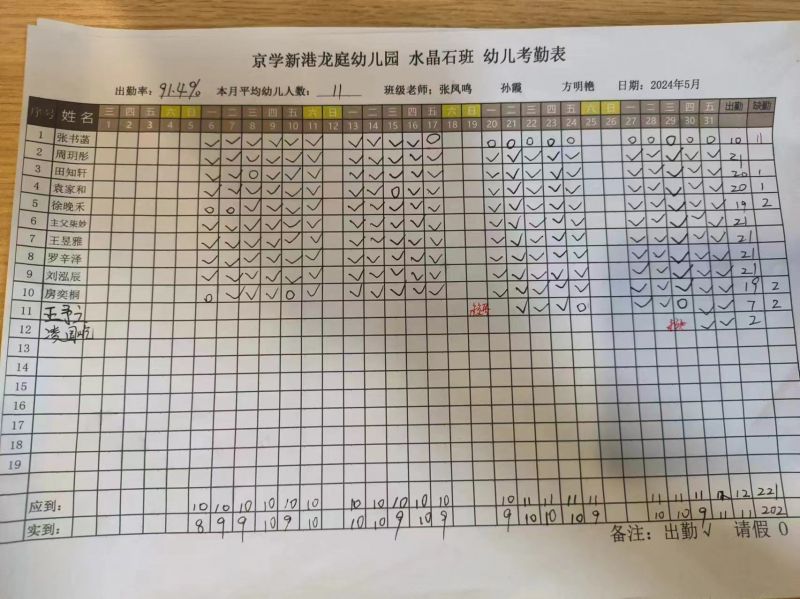 京学新港龙庭幼儿园 水晶石班 幼儿考勤表
出勤率: 91.4% 本月平均幼儿人数: 11 班级老师: 张凤鸣 孙霞 方明艳 日期: 2024年5月
序号 姓名 三 四 五 六 日 一 二 三 四 五 六 日 一 二 三 四 五 六 日 一 二 三 四 五 六 日 一 二 三 四 五 出勤 缺勤
1 2 3 4 5 6 7 8 9 10 11 12 13 14 15 16 17 18 19 20 21 22 23 24 25 26 27 28 29 30 31
1 张书菡 ✓ ✓ ✓ ✓ ✓ ✓ ✓ ✓ ✓ ✓ 0 0 0 0 0 0 0 0 0 0 0 10 11
2 周玥彤 ✓ ✓ ✓ ✓ ✓ ✓ ✓ ✓ ✓ ✓ ✓ ✓ ✓ ✓ ✓ ✓ ✓ ✓ ✓ ✓ ✓ 21
3 田知轩 ✓ ✓ 0 ✓ ✓ ✓ ✓ ✓ ✓ ✓ ✓ ✓ ✓ ✓ ✓ ✓ ✓ ✓ ✓ ✓ ✓ 20 1
4 袁家和 ✓ ✓ ✓ ✓ ✓ ✓ ✓ ✓ 0 ✓ ✓ ✓ ✓ ✓ ✓ ✓ ✓ ✓ ✓ ✓ ✓ 20 1
5 徐晚禾 0 0 ✓ ✓ ✓ ✓ ✓ ✓ ✓ ✓ ✓ ✓ ✓ ✓ ✓ ✓ ✓ ✓ ✓ ✓ ✓ 19 2
6 主父柒妙 ✓ ✓ ✓ ✓ ✓ ✓ ✓ ✓ ✓ ✓ ✓ ✓ ✓ ✓ ✓ ✓ ✓ ✓ ✓ ✓ ✓ 21
7 王昱雅 ✓ ✓ ✓ ✓ ✓ ✓ ✓ ✓ ✓ ✓ ✓ ✓ ✓ ✓ ✓ ✓ ✓ ✓ ✓ ✓ ✓ 21
8 罗辛泽 ✓ ✓ ✓ ✓ ✓ ✓ ✓ ✓ ✓ ✓ ✓ ✓ ✓ ✓ ✓ ✓ ✓ ✓ ✓ ✓ ✓ 21
9 刘泓辰 ✓ ✓ ✓ ✓ ✓ ✓ ✓ ✓ ✓ ✓ ✓ ✓ ✓ ✓ ✓ ✓ ✓ ✓ ✓ ✓ ✓ 21
10 房奕桐 0 ✓ ✓ ✓ 0 ✓ ✓ ✓ ✓ ✓ ✓ ✓ ✓ ✓ ✓ ✓ ✓ ✓ ✓ ✓ ✓ 19 2
11 ✓ ✓ ✓ 0 ✓ ✓ 0 ✓ ✓ 7 2
12 ✓ ✓ 2
13
14
15
16
17
18
19
应到: 10 10 10 10 10 10 10 10 10 10 10 10 11 11 11 11 11 11 11 12 221
实到: 8 9 9 10 9 10 10 10 9 10 9 9 10 10 10 9 10 10 9 11 11 202
备注: 出勤✓ 请假 0